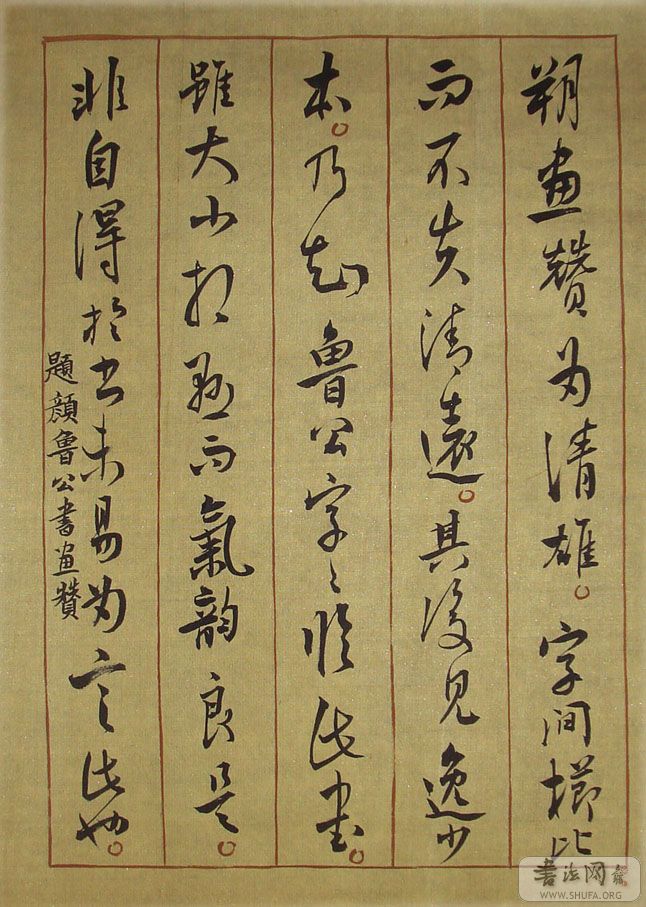 朔畫贊为清雄。字间櫛比
而不失清遠。其後見逸少
本。乃知魯公字々临此書。
雖大小相悬而氣韵良是。
非自得於书未易为言此也。
題顏魯公書畫贊
书法网
WWW.SHUFA.ORG